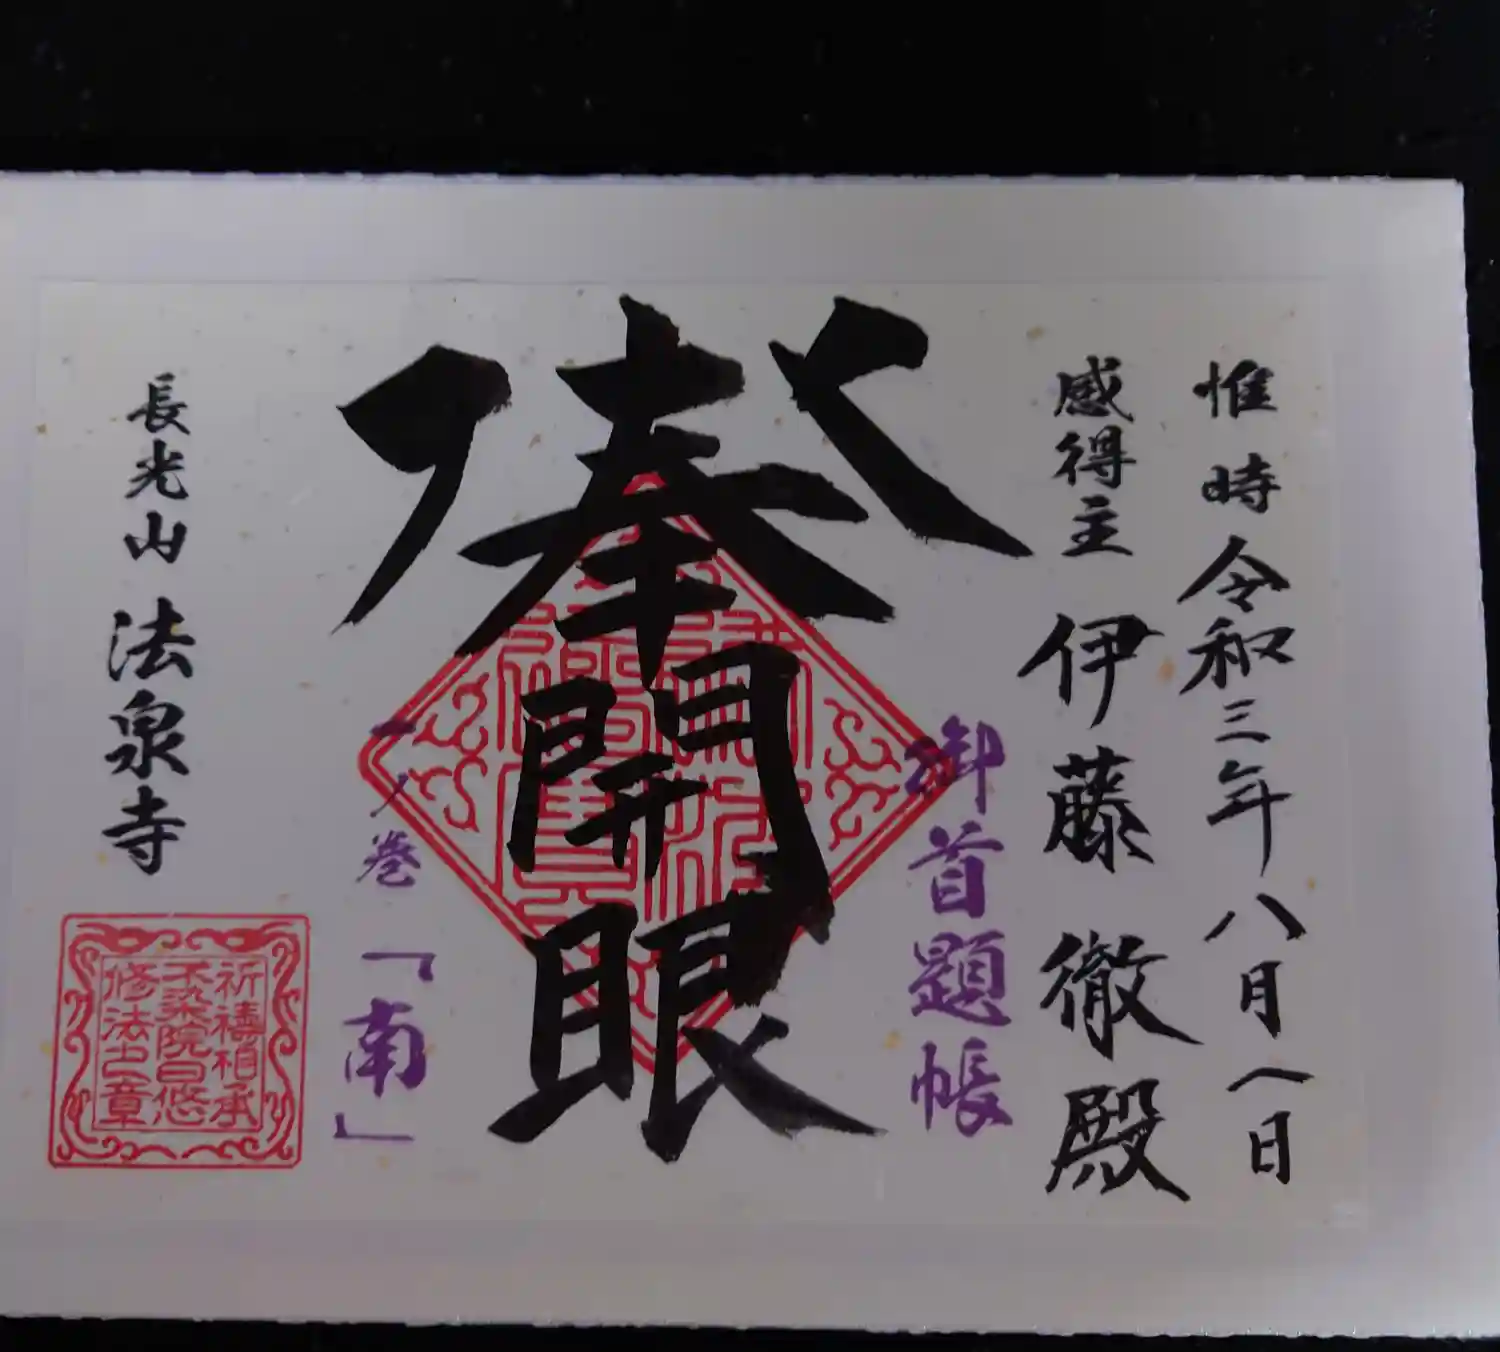 惟時令和三年八月八日
感得主 伊藤徹殿
御首題帳
奉開眼
一ノ巻「南」
長光山 法泉寺
祈禱相承
不染院日悠
修法之章